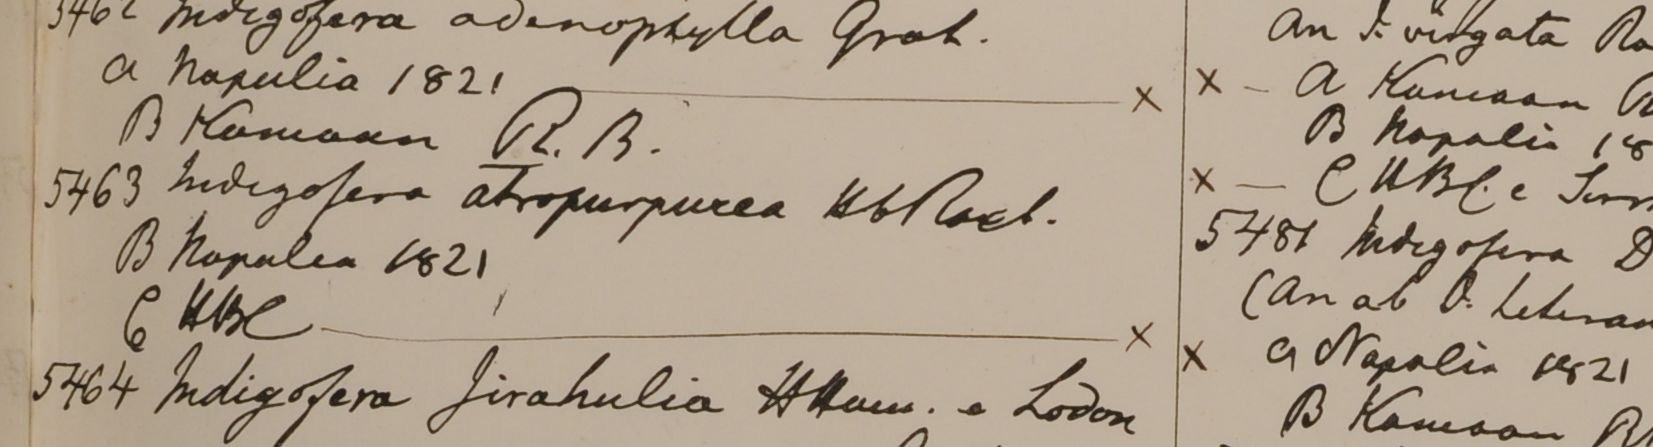 5462 Indigofera adenophylla Grah.
a Napulia 1821 x
B Kamaon R. B.
5463 Indigofera atropurpurea Hb Roxb.
B Napalea 1821
C HBC x
5464 Indigofera Jirahulia HHam. e Lodon
An I. virgata Ro
x - A Kamaon R
B Napalia 18
x - C HBC. e
5481 Indigofera D
(an ab D.
x a Napalia 1821
B Kamaon